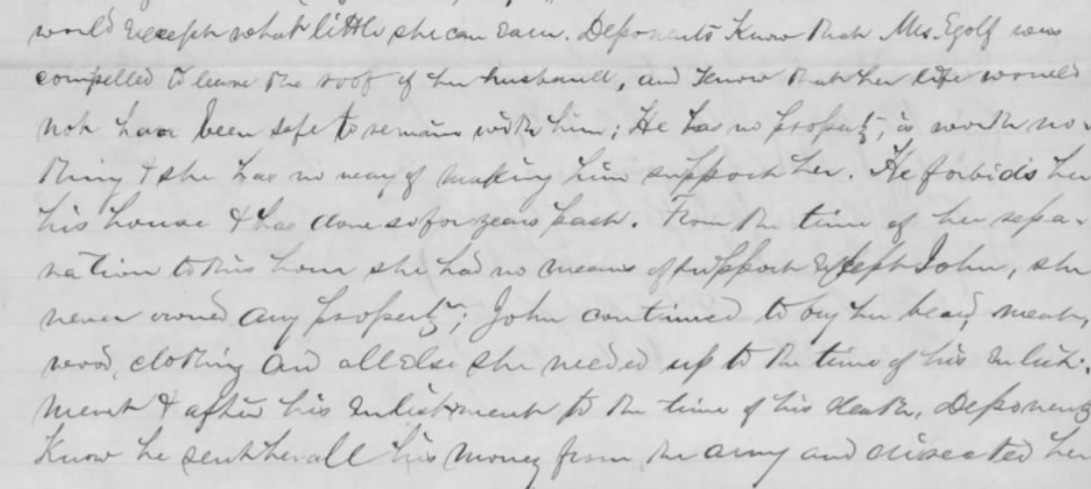 world except what little she can earn. Deponents Know that Mrs. Egolf was
compelled to leave the roof of her husband, and know that her life would
not have been safe to remain with him; He has no property, is worth no-
thing & she has no way of making him support her. He forbids her
his house & has done so for years past. From the time of her sepa-
ration to this hour she had no means of support except John, she
never owned any property; John continued to buy her bread, meat,
wood, clothing and all else she needed up to the time of his enlist-
ment & after his enlistment to the time of his death, Deponents
Know he sent her all his money from the army and directed her